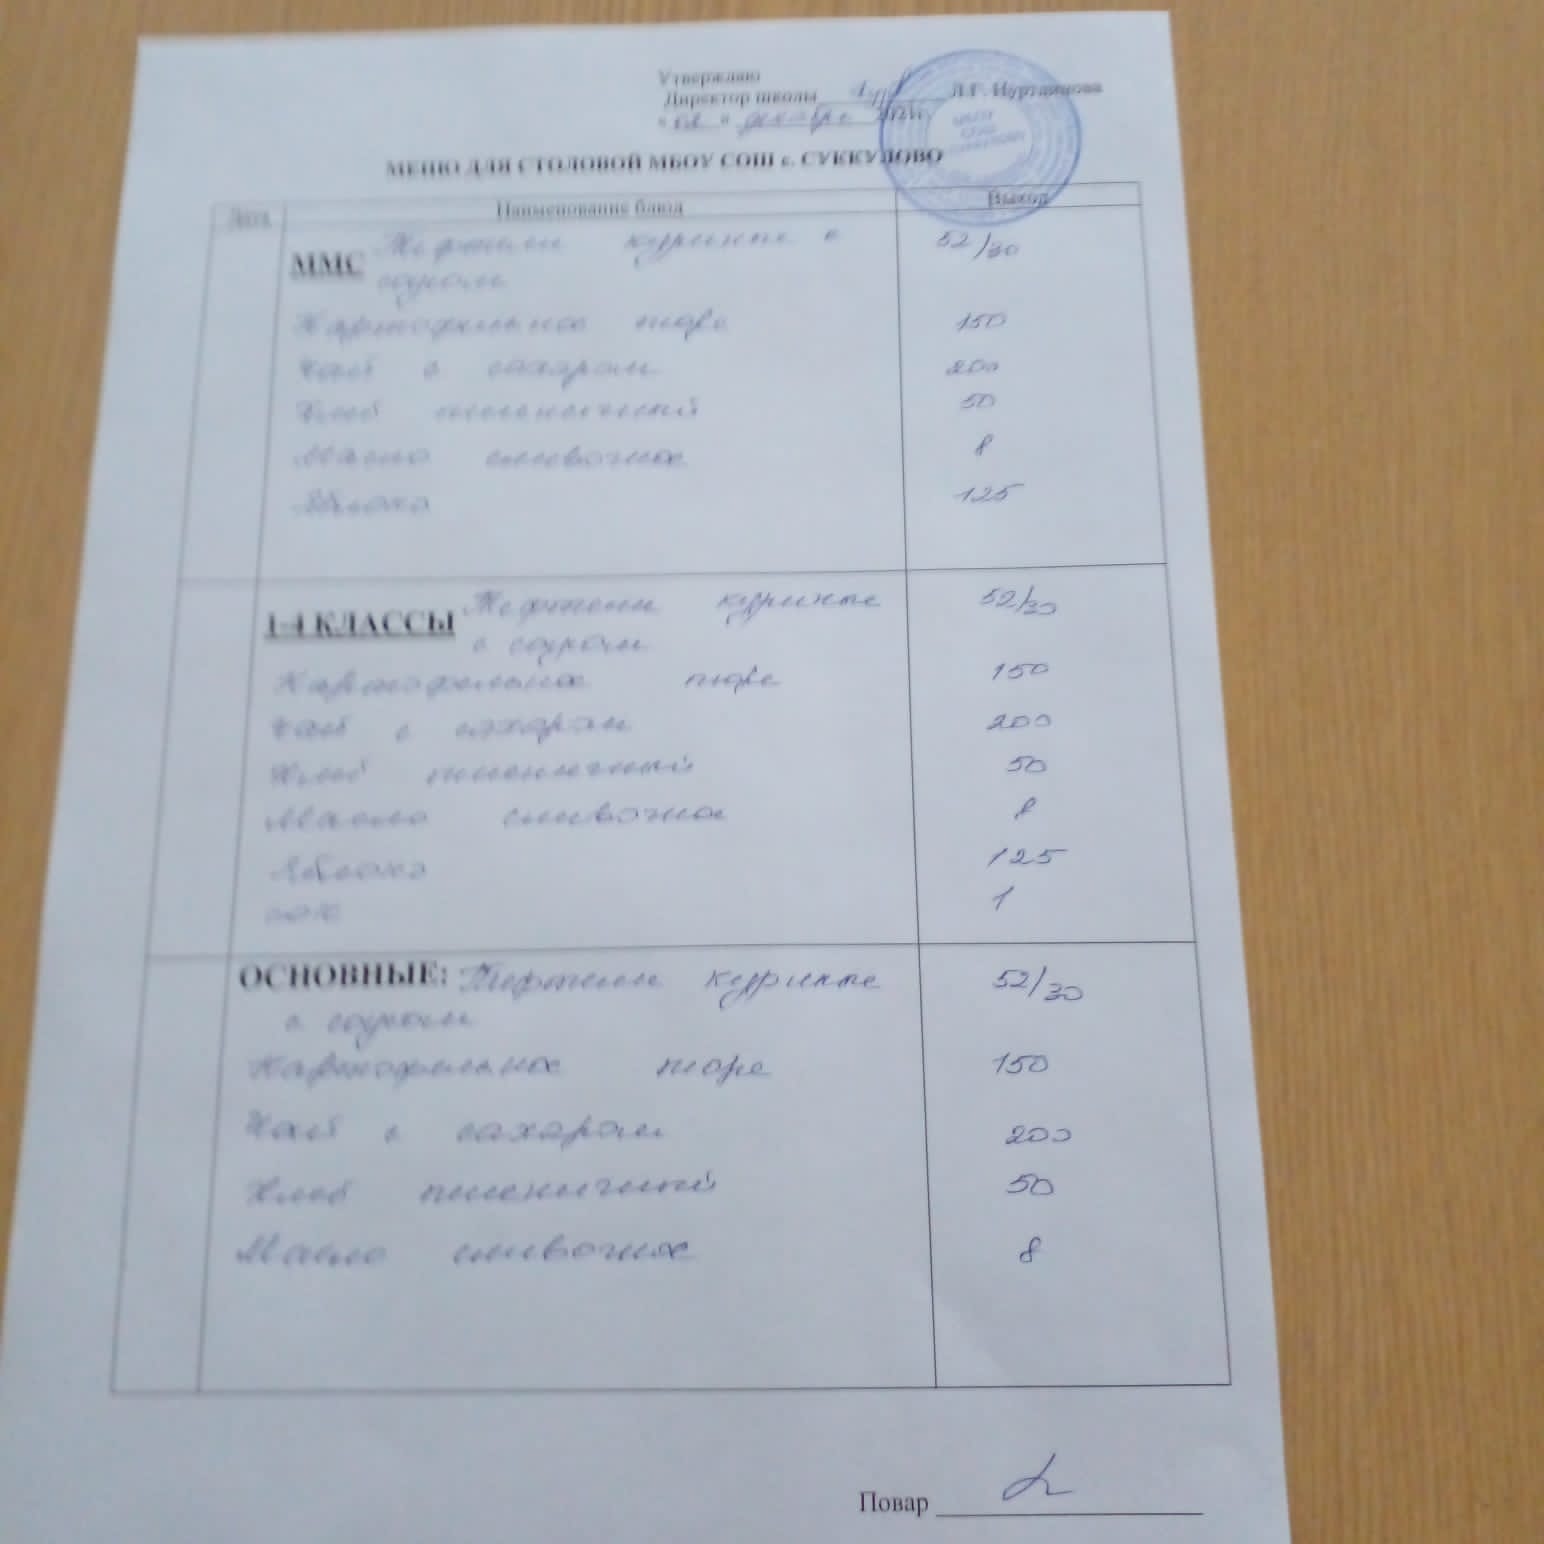 Утверждаю
Директор школы Л.Г. Нуртдинова
« 02 » декабрь
МБОУ
СОШ
МЕНЮ ДЛЯ СТОЛОВОЙ МБОУ СОШ с. СУККУЛОВО
Дата Наименование блюд Выход
ММС Тефтели куриные с 52/30
соусом
Картофельное пюре 150
Чай с сахаром 200
Хлеб пшеничный 50
Масло сливочное 8
Яблоко 125
1-4 КЛАССЫ Тефтели куриные 52/30
с соусом
Картофельное пюре 150
Чай с сахаром 200
Хлеб пшеничный 50
Масло сливочное 8
Яблоко 125
сок 1
ОСНОВНЫЕ: Тефтели куриные 52/30
с соусом
Картофельное пюре 150
Чай с сахаром 200
Хлеб пшеничный 50
Масло сливочное 8
Повар